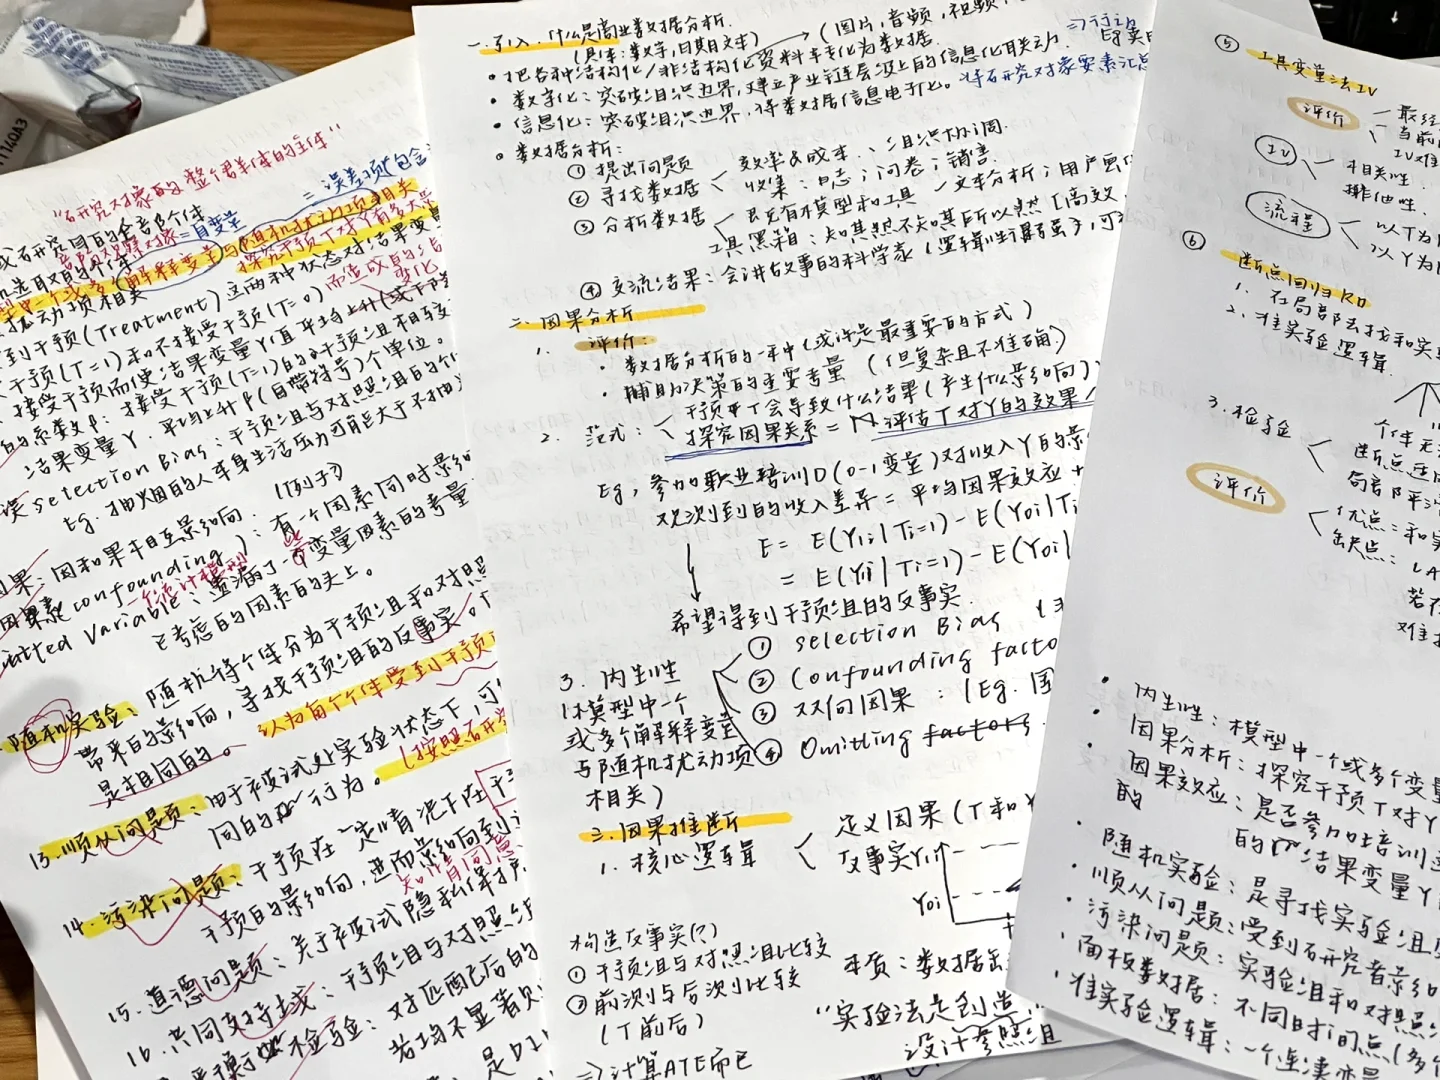 "研究对象的整个群体的主体"
= 误差项(包含
或研究目的全部个体
= 自变量
解释变量与随机扰动项相关
探究干预T对Y有多大影
扰动项相关
受到干预(Treatment)这两种状态对结果变量
而造成的结
变化
干预(T=1)和不接受干预(T=0)
接受干预而使结果变量Y值平均上升(或下降
的系数β: 接受干预(T=1)的干预组相较
结果变量Y.平均上升β(自带符号)个单位。
selection Bias: 干预组与对照组的个
Eg. 抽烟的人本身生活压力可能大于不抽
(例子)
果: 因和果相互影响.
因素 confounding): 有一个因素同时影响
一个统计模型
itted Variable: 遗漏了一个变量因素的考量
已考虑的因素的头上。
随机实验: 随机将个体分为干预组和对照
带来的影响, 寻找干预组的反事实。
是相同的。
认为每个个体受到干预
13. 顺从问题: 由于被试处实验状态下, 可
同的 行为。
(按照研究
14. 污染问题: 干预在一定情况下在干
干预的影响, 进而影响到
知情同意
15. 道德问题: 关于被试隐私保护
16. 共同支持域: 干预组与对照组
平衡性检验: 对匹配后的
若均不显著
一. 引入. 什么是商业数据分析.
(具体: 数字, 日期, 文本) (图片, 音频, 视频,
• 把各种结构化/非结构化资料转化为数据.
• 数字化: 突破组织边界, 建立产业链层级上的信息化联动.
• 信息化: 突破组织边界, 将数据信息电子化。 将研究对象要素汇总
• 数据分析:
① 提出问题 效率&成本、组织协调.
② 寻找数据 < 收集: 日志; 问卷; 销售.
③ 分析数据 < 已先有模型和工具 — 文本分析; 用户画
工具黑箱: 知其然不知其所以然 [高效
④ 交流结果: 会讲故事的科学家 (逻辑性解释强于, 可
二. 因果分析
1. 评价:
• 数据分析的一种 (或许是最重要的方式)
• 辅助决策的重要考量 (但复杂且不准确.)
2. 范式: < 干预T会导致什么结果 (产生什么影响)
探究因果关系 = 评估T对Y的效果
Eg, 参加职业培训D(0-1变量)对收入Y的影
观测到的收入差异 = 平均因果效应 +
E = E(Y1i|Ti=1) - E(Y0i|Ti
= E(Y1i|Ti=1) - E(Y0i|
希望得到干预组的反事实.
3. 内生性
(模型中一个
或多个解释变量
与随机扰动项
相关)
① selection Bias
② Confounding facto
③ 双向因果: (Eg.
④ Omitting factors
三. 因果推断
1. 核心逻辑 < 定义因果 (T和Y
反事实 Y1i
Y0i
构造反事实(?)
① 干预组与对照组比较
② 前测与后测比较
(T前后)
⇒ 计算ATE而已
本质: 数据缺
"实验法是创造
设计参照组
⑤ 工具变量法 IV
评价
最经
当前
IV难
IV < 相关性.
排他性.
流程 < 以T为
以Y为
⑥ 断点回归RD
1. 在局部去找和实
2. 准实验逻辑
3. 检验
个体无
断点连
局部平
评价
优点: 和实
缺点: LA
若在
难
• 内生性: 模型中一个或多个变量
• 因果分析: 探究干预T对Y
• 因果效应: 是否参加培训
的 的 结果变量Y
• 随机实验: 是寻找实验组
• 顺从问题: 受到研究者影响
• 污染问题: 实验组和对照
• 面板数据: 不同时间点(多个
• 准实验逻辑: 一个连续变量